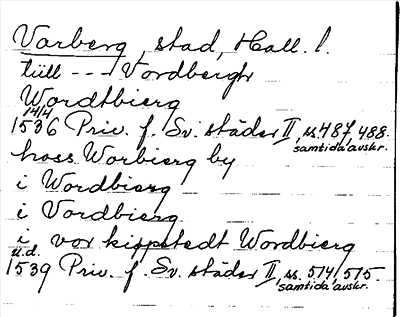 Varberg, stad, Hall. l.
tiill --- Vordbergh
Wordtbierg
14/4
1536 Priv. f. Sv. städer II, ss. 487, 488.
samtida avskr.
hoss Worbierg by
i Wordbierg
i Vordbierg
i vor kippstedt Wordbierg
u.d.
1539 Priv. f. Sv. städer II, ss. 514, 515.
samtida avskr.